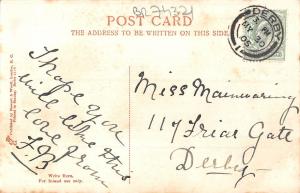 BR 74321
POST CARD
THE ADDRESS TO BE WRITTEN ON THIS SIDE.
DERBY
I hope you
will like this
love from
Miss Mainwaring
117 Friar Gate
Derby
Write Here.
For Inland use only.